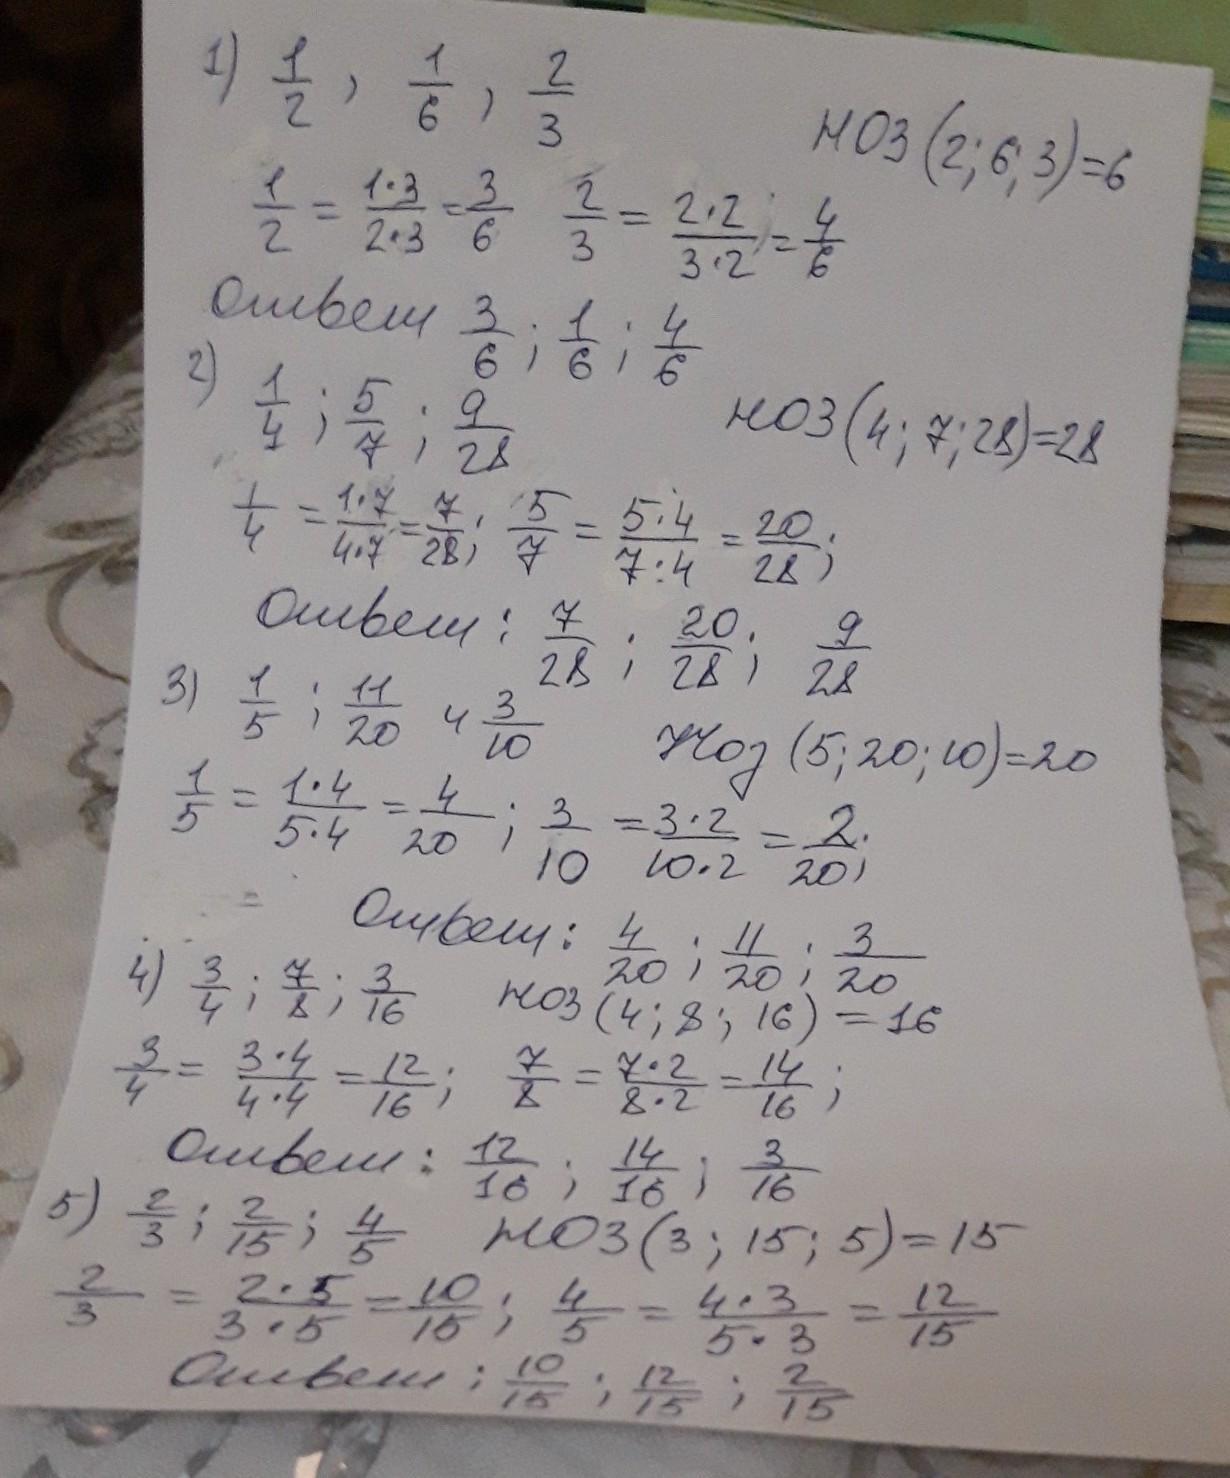 1) 1/2, 1/6, 2/3
НОЗ(2;6;3)=6
1/2 = 1·3/2·3 = 3/6 2/3 = 2·2/3·2 = 4/6
Ответ 3/6; 1/6; 4/6
2) 1/4; 5/7; 9/28 НОЗ(4;7;28)=28
1/4 = 1·7/4·7 = 7/28; 5/7 = 5·4/7:4 = 20/28;
Ответ: 7/28; 20/28; 9/28
3) 1/5; 11/20 и 3/10 Ноз (5;20;10)=20
1/5 = 1·4/5·4 = 4/20; 3/10 = 3·2/10·2 = 2/20;
Ответ: 4/20; 11/20; 3/20
4) 3/4; 7/8; 3/16 НОЗ(4;8;16)=16
3/4 = 3·4/4·4 = 12/16; 7/8 = 7·2/8·2 = 14/16;
Ответ: 12/16; 14/16; 3/16
5) 2/3; 2/15; 4/5 НОЗ(3;15;5)=15
2/3 = 2·5/3·5 = 10/15; 4/5 = 4·3/5·3 = 12/15
Ответ: 10/15; 12/15; 2/15